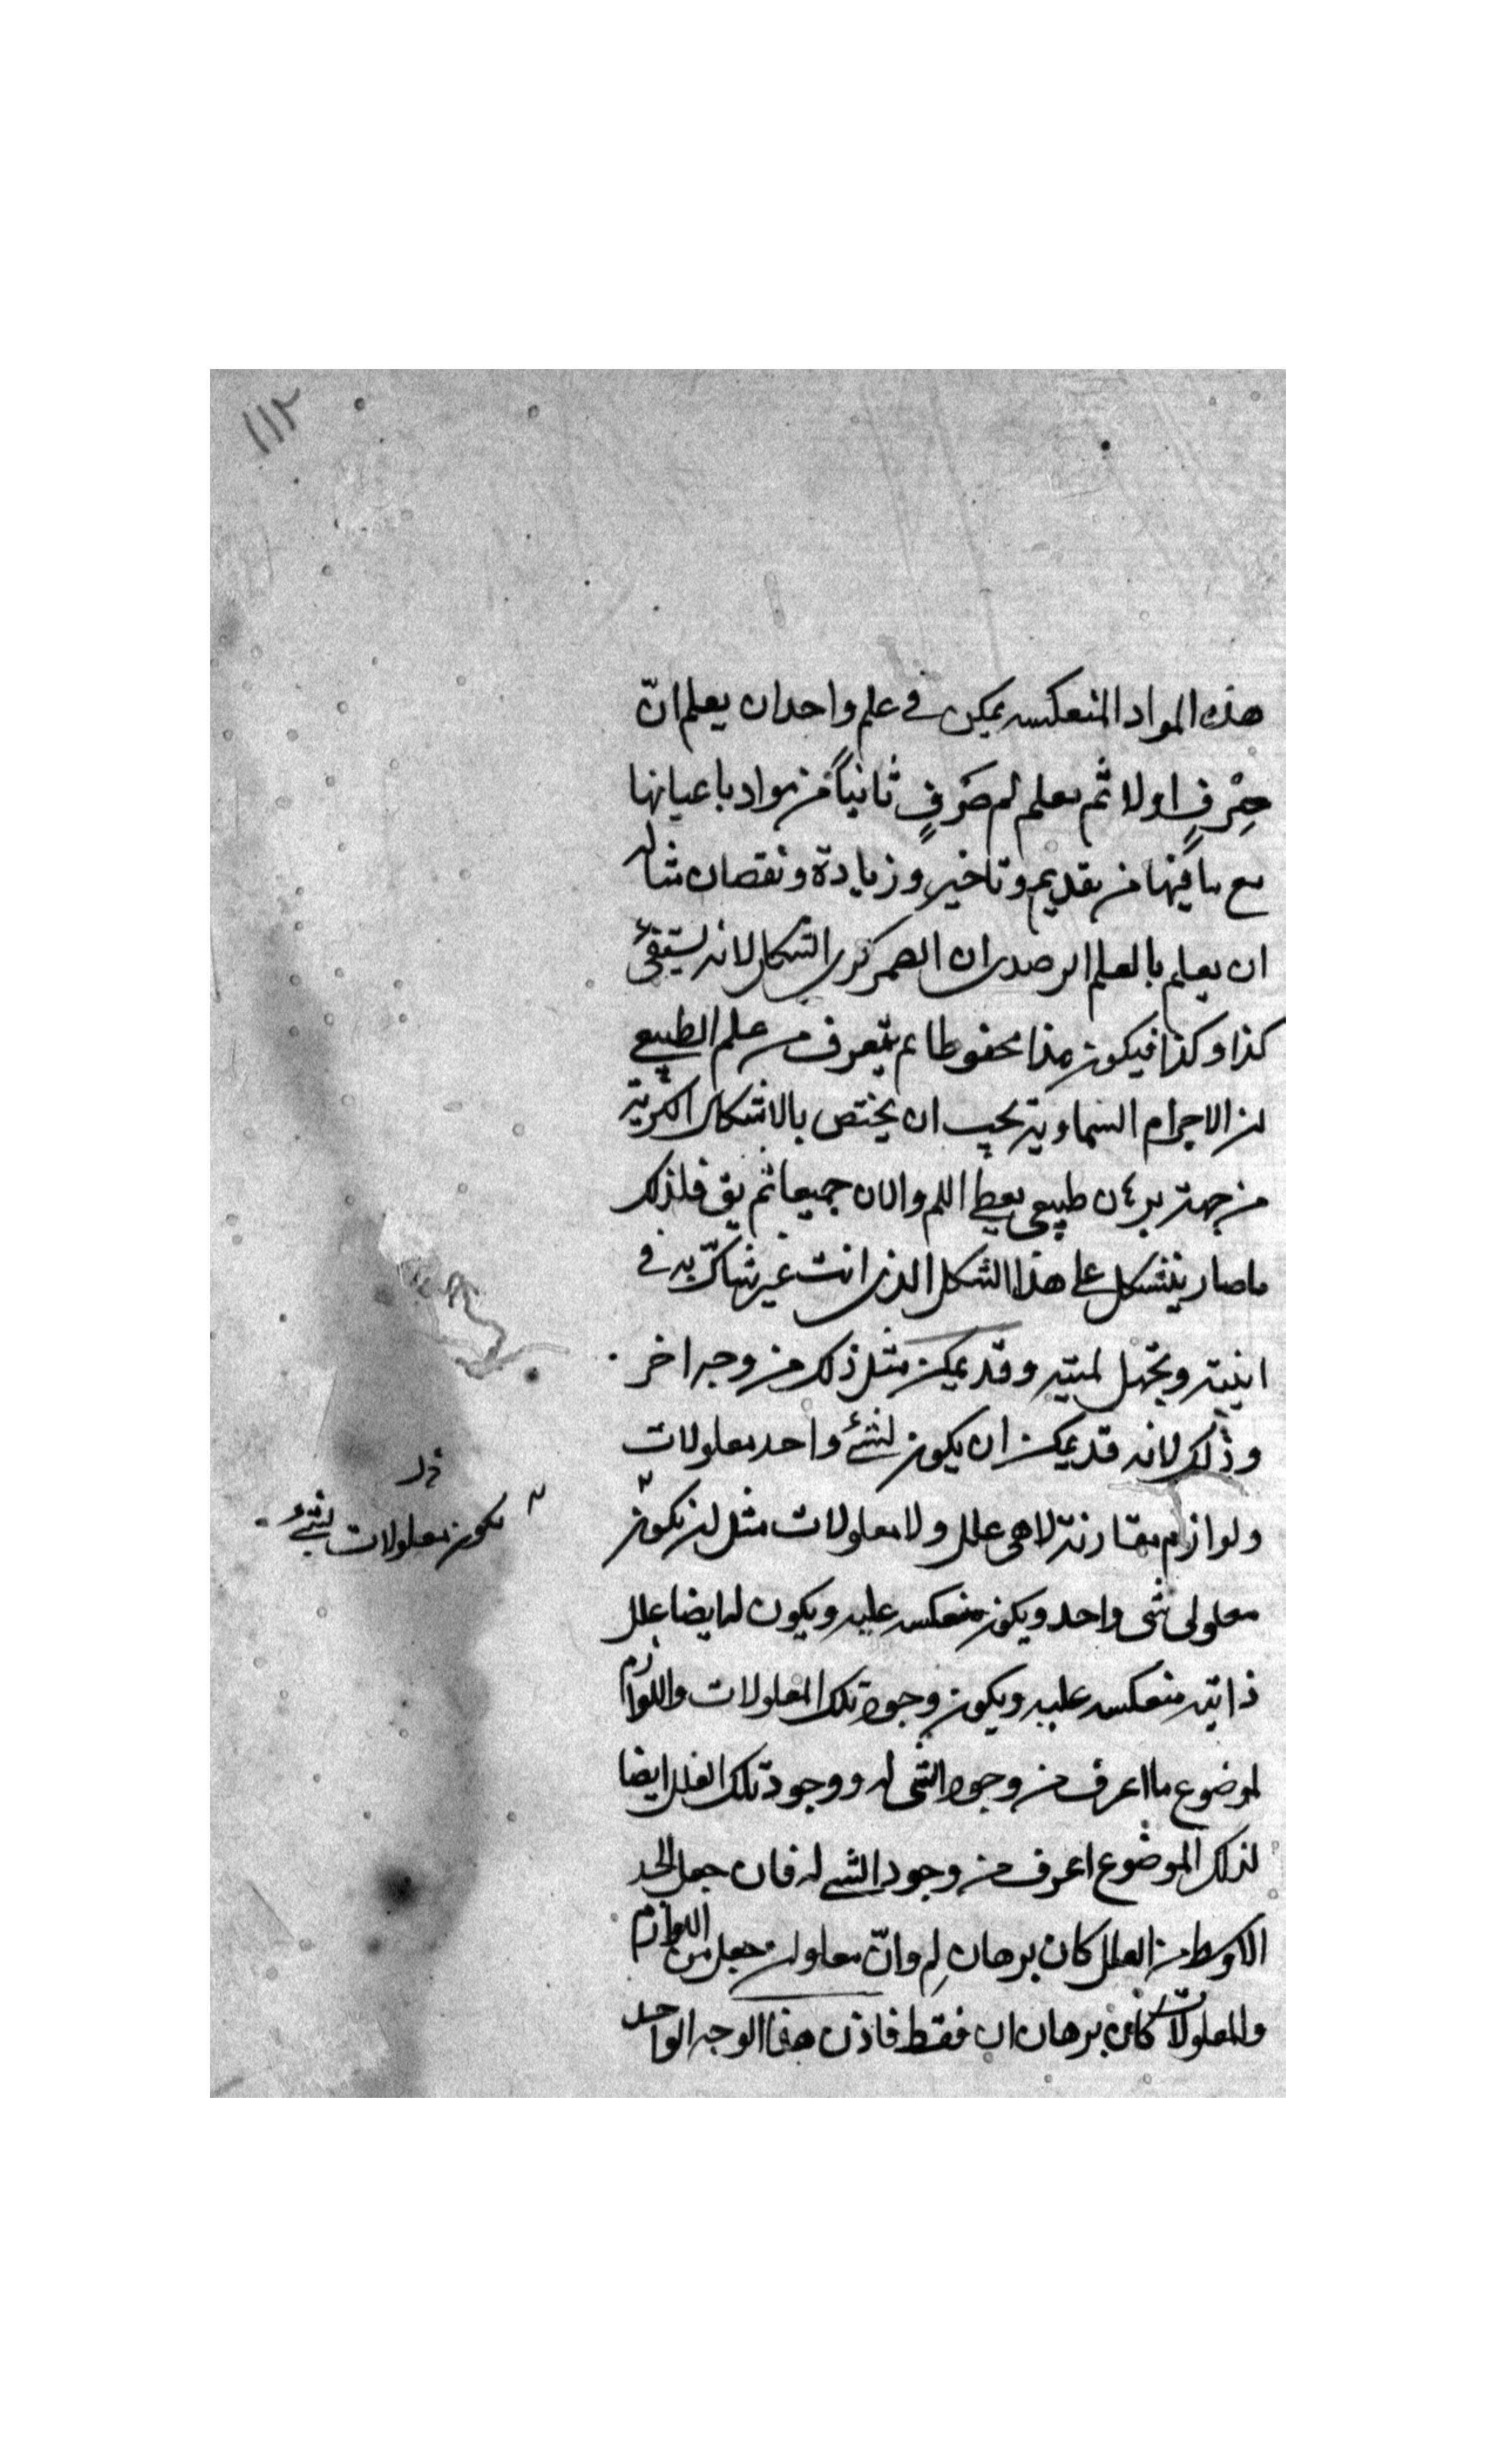 ١١٢
هذه المواد المنعكسه يمكن في علم واحد ان يعلم انّ
صِرْفٍ اولا ثم يعلم لم صَرفٍ ثانياً من مواد باعيانها
مع ما فيها من تقديم وتاخير وزيادة ونقصان مثاله
ان يعلم بالعلم الرصدى ان القمر كرى الشكل لانه يستضئ
كذا وكذا فيكون هذا محفوظا ثم يتعرف من علم الطبيعي
ان الاجرام السماوية يجب ان يختص بالاشكال الكرية
من جهة برهان طبيعى يعطي اللم والان جميعا ثم يق فلذلك
ما صار يتشكل على هذا الشكل الذى انت غير شاكّ به في
انيته وتجهل لميته وقد يمكن مثل ذلك من وجه اخر
وذلك لانه قد يمكن ان يكون لشئ واحد معلولات
ولوازم مقارنة لا هى علل ولا معلولات مثل ان تكون
يكون معلولات لشئ
معلولى شى واحد ويكون منعكسه عليه ويكون له ايضا علل
ذاتيه منعكسه عليه ويكون وجود تلك المعلولات واللوازم
لموضوع ما اعرف من وجود الشى له ووجود تلك العلل ايضا
لذلك الموضوع اعرف من وجود الشى له فان جعل الحد
الاوسط من العلل كان برهان لِم وانّ معا وان جعل من اللوازم
والمعلولات كان برهان ان فقط فاذن هذا الوجه الواحد